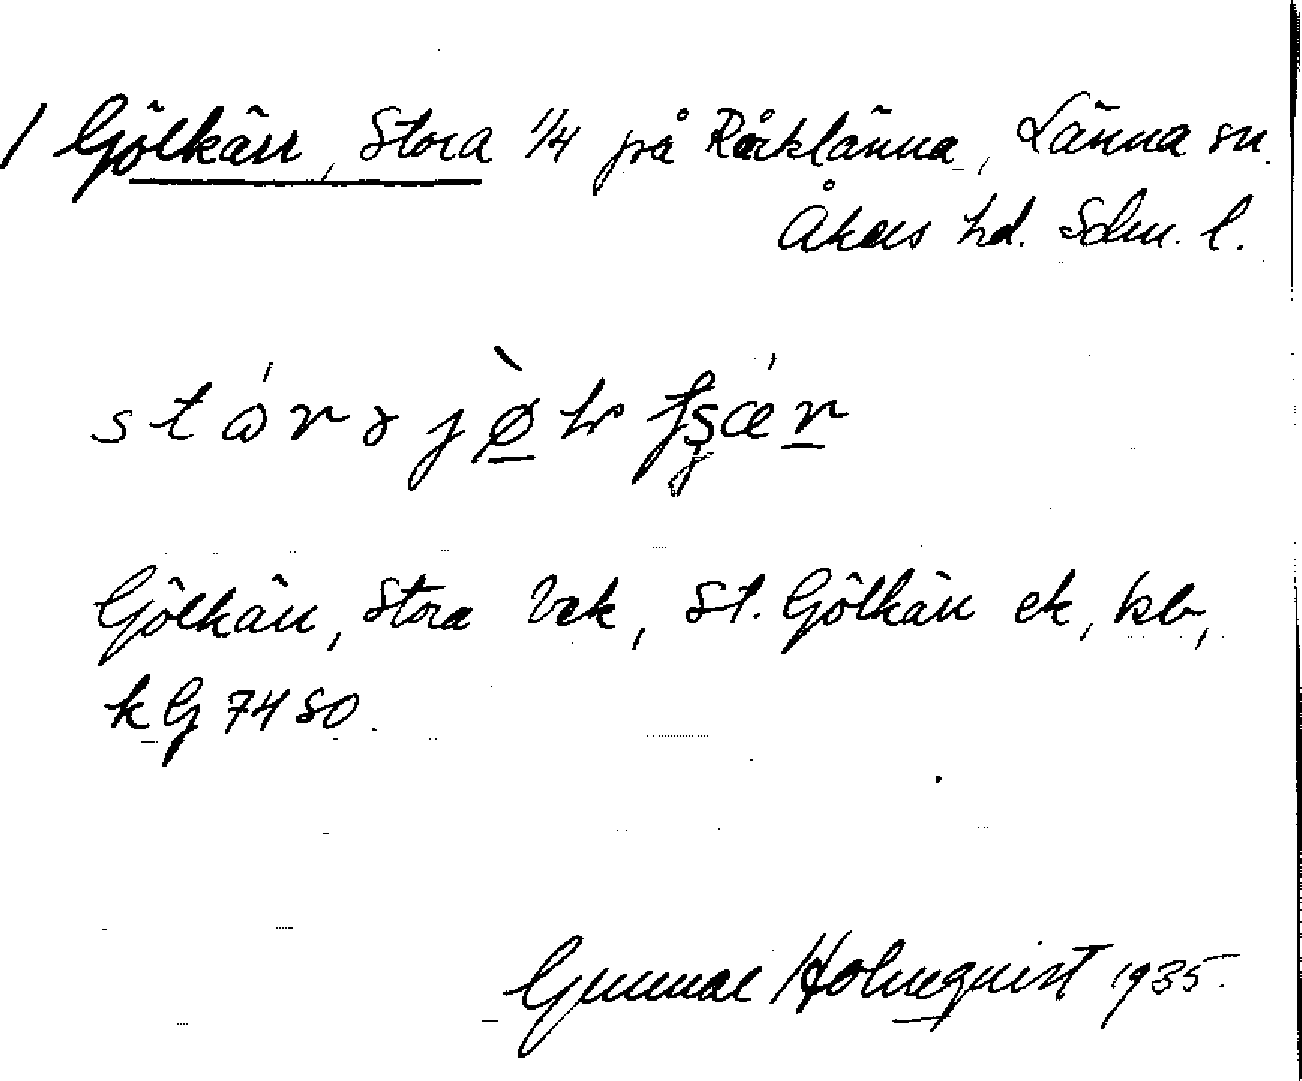 / Gölkärr, Stora 1/4 på Råcklänna, Länna sn.
Åkers hd. Sdm. l.
Gölkärr, Stora Vek, St. Gölkärr ek, kb,
k G 7450.
Gunnar Holmquist 1935.